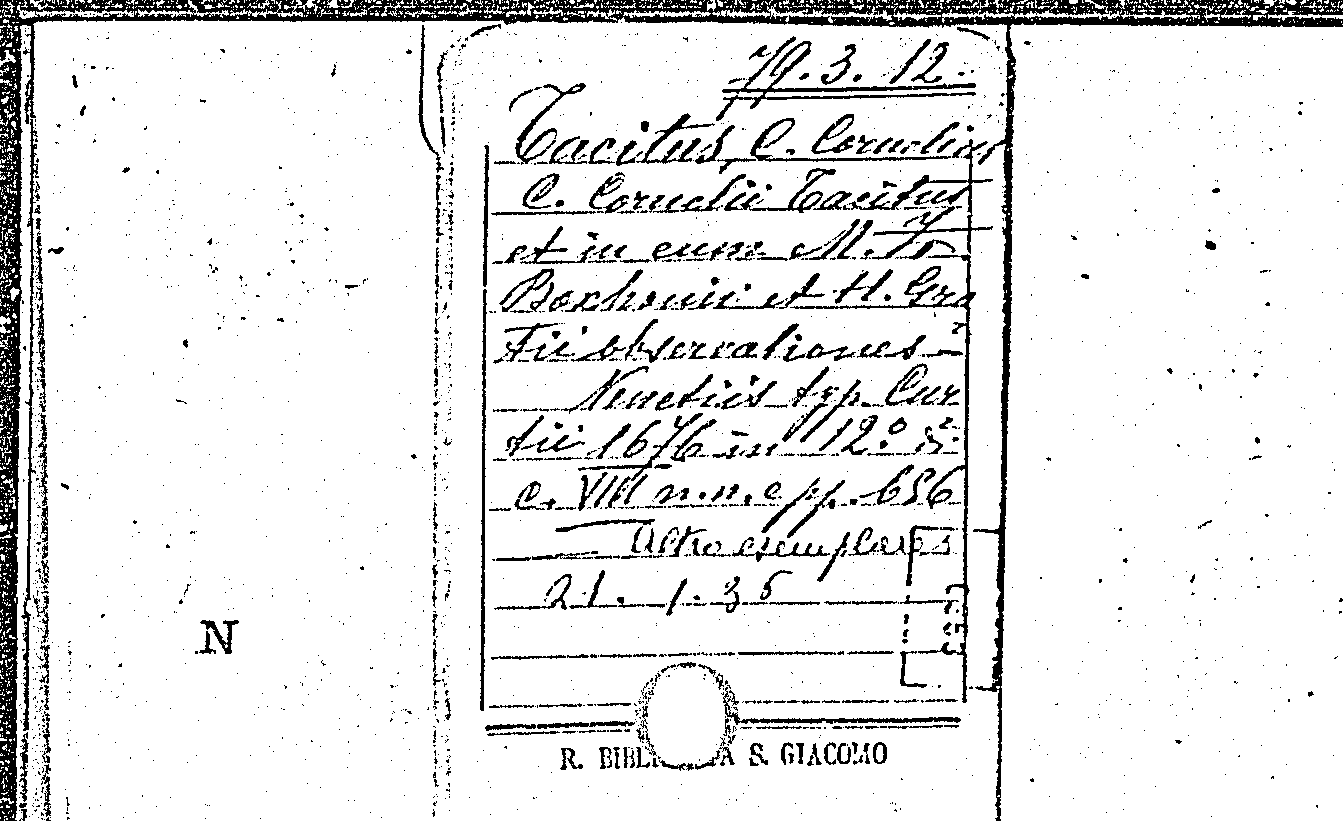 79.3.12.
Tacitus, C. Cornelius
C. Cornelii Tacitus
et in eum M. Z.
Boxhornii et H. Gro
tii observationes -
Venetiis typ. Cur
tii 1676 in 12.°
c. VIII n.n. e pp. 656
Altro esemplare
21. 1.35
N
R. BIBL A S. GIACOMO